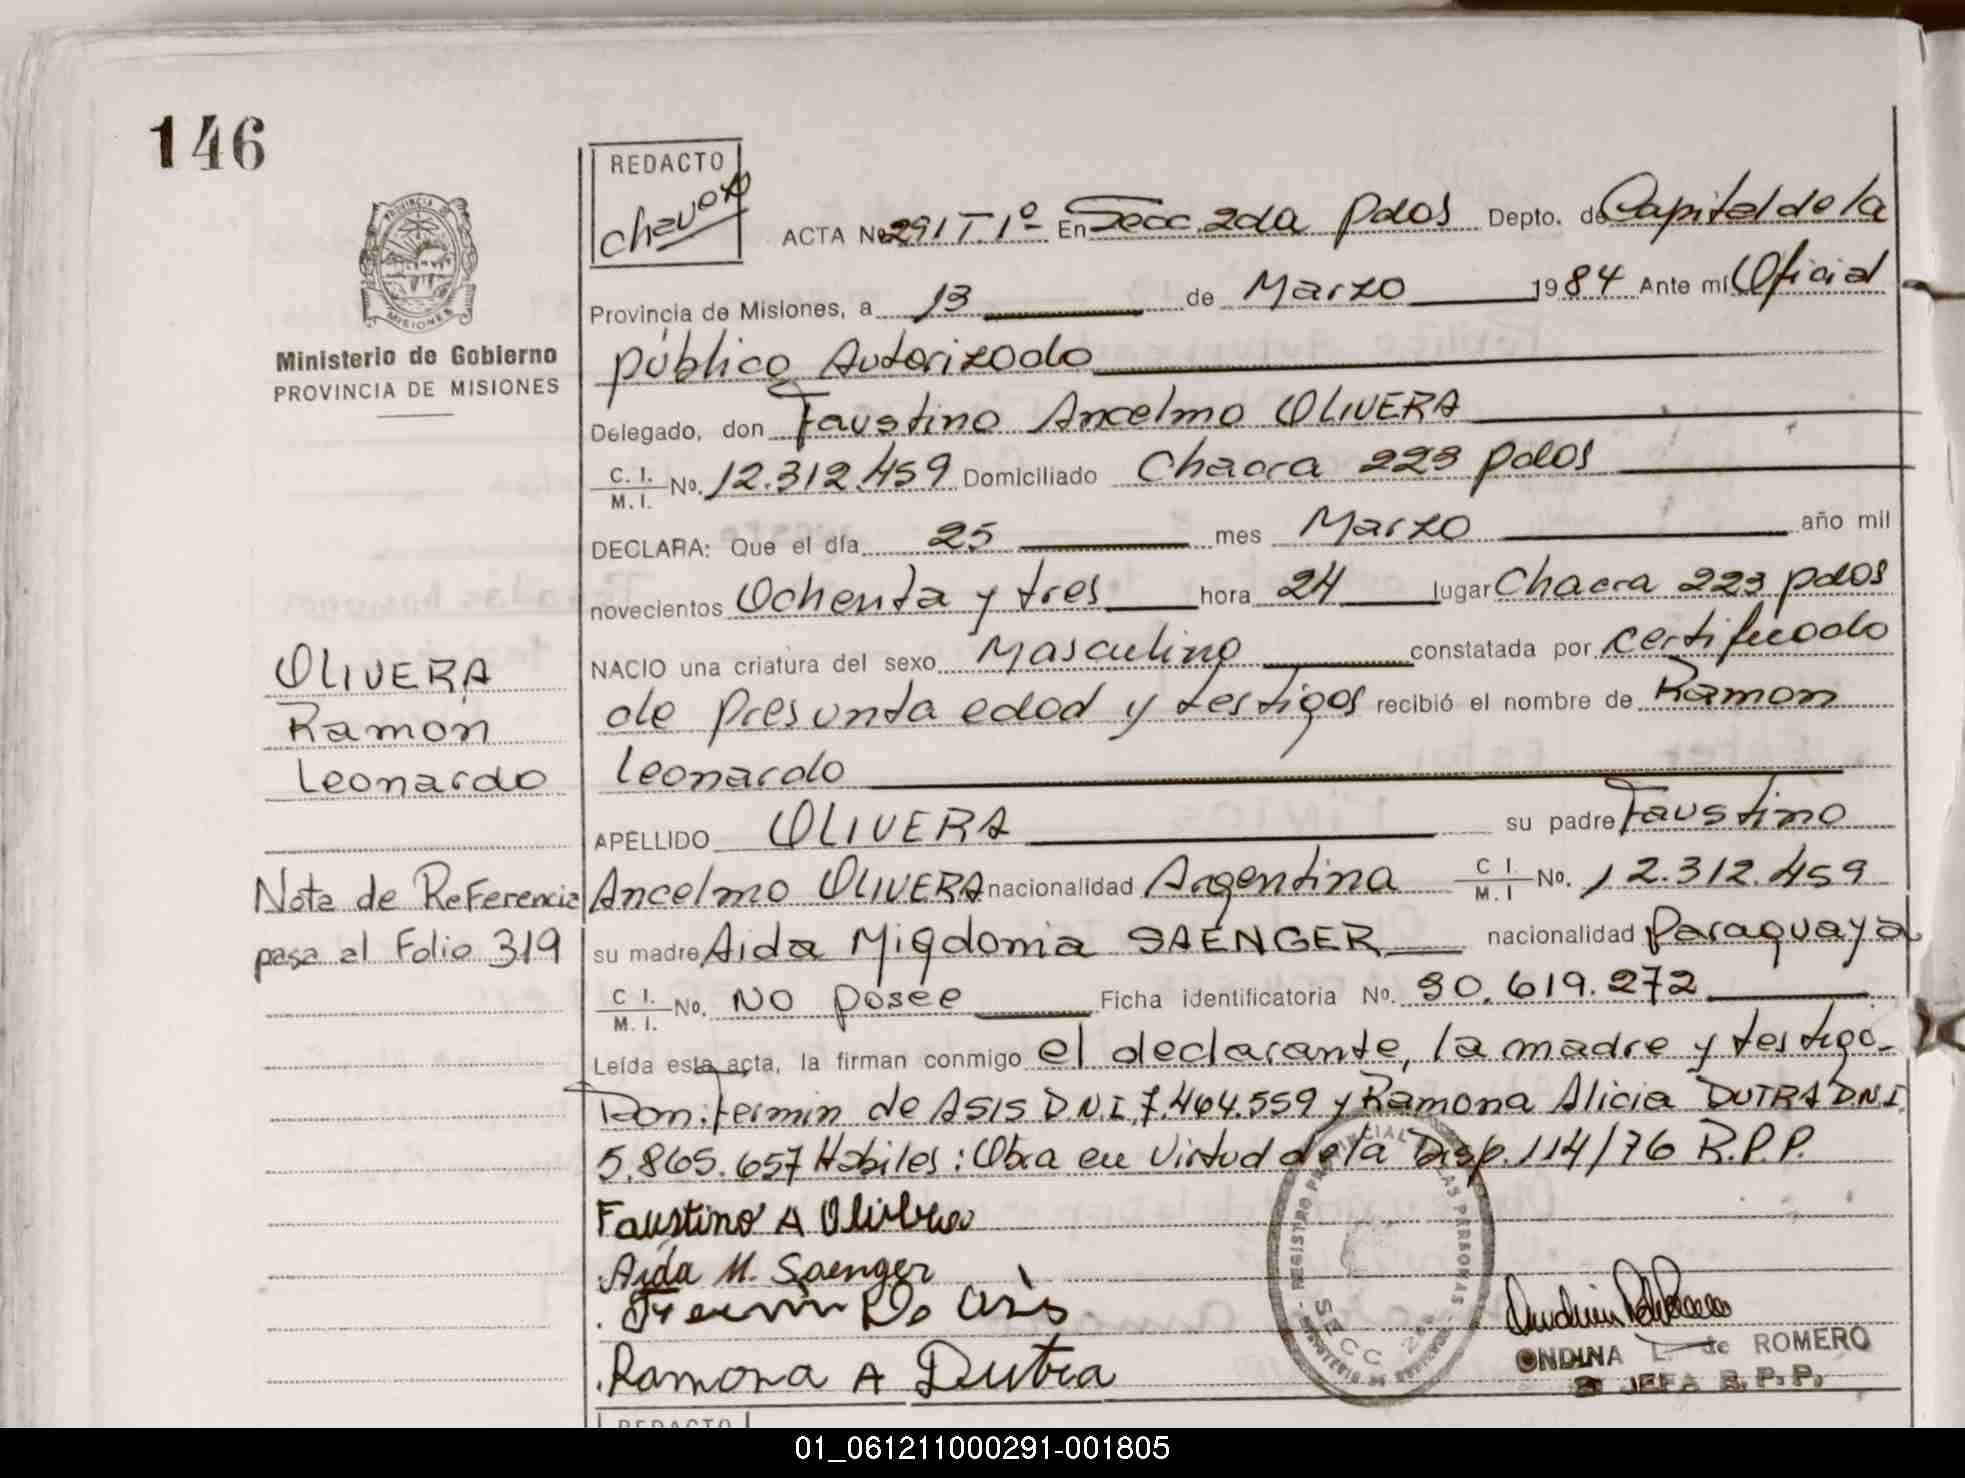 146
REDACTO
PROVINCIA DE
MISIONES
Ministerio de Gobierno
PROVINCIA DE MISIONES
ACTA No 291 T. 1º En Secc. 2da Pdas Depto. de Capital de la
Provincia de Misiones, a 13 de Marzo 1984 Ante mí Oficial
público Autorizado
Delegado, don Faustino Ancelmo OLIVERA
C. I. M. I. No. 12.312.459 Domiciliado Chacra 223 pdas
DECLARA: Que el día 25 mes Marzo año mil
novecientos Ochenta y tres hora 24 lugar Chacra 223 pdas
NACIO una criatura del sexo Masculino constatada por certificado
de presunta edad y testigos recibió el nombre de Ramon
Leonardo
APELLIDO OLIVERA su padre Faustino
Ancelmo OLIVERA nacionalidad Argentina C I. M. I No. 12.312.459
su madre Aida Migdonia SAENGER nacionalidad Paraguaya
C I. M. I. No. NO posee Ficha identificatoria No. 90.619.272
Leída esta acta, la firman conmigo el declarante, la madre y testigo.
Don: Fermin de ASIS D.N.I. 7.464.559 y Ramona Alicia DUTRA D.N.I.
5.865.657 Habiles: Obra en virtud de la Disp. 114/76 R.P.P.
Faustino A Olivera
Aida M. Saenger
Fermin De Asis
Ramona A Dutra
OLIVERA
Ramon
Leonardo
Nota de Referencia
pasa al Folio 319
REGISTRO PROVINCIAL DE LAS PERSONAS
SECC 2da
ONDINA L. de ROMERO
JEFA R. P. P.
REDACTO
01_061211000291-001805